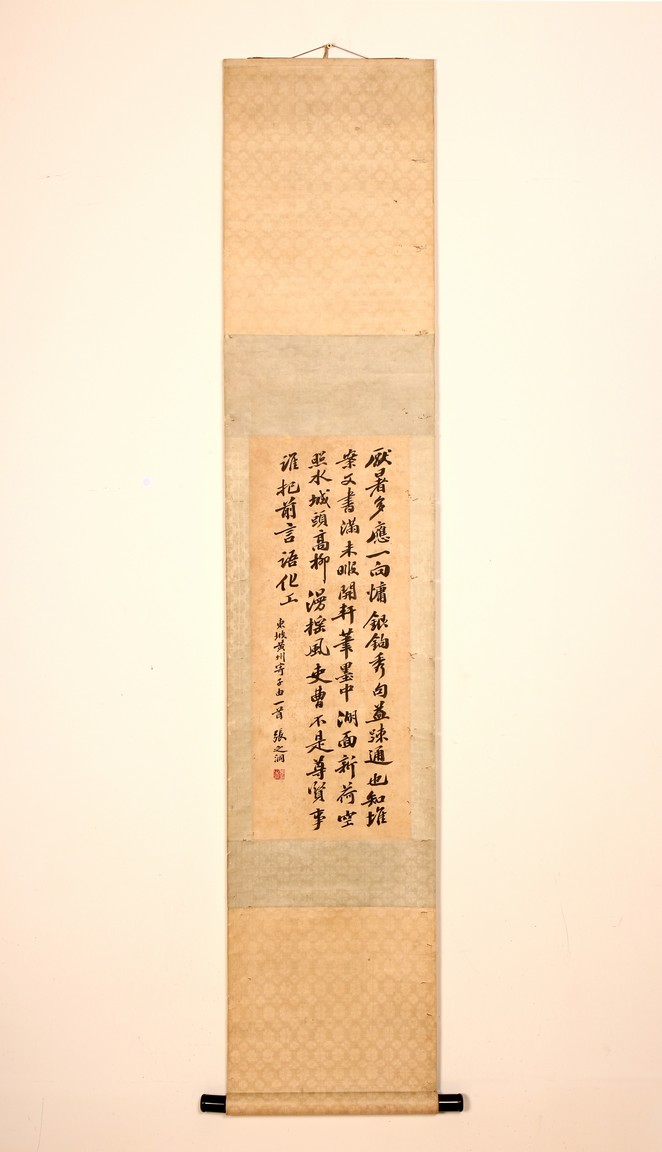 厭暑多應一向慵銀鉤秀句益疎通也知堆
案文書滿未暇開軒筆墨中湖面新荷空
照水城頭高柳漫搖風吏曹不是尊賢事
誰把前言語化工
東坡黃州寄子由一首 張之洞